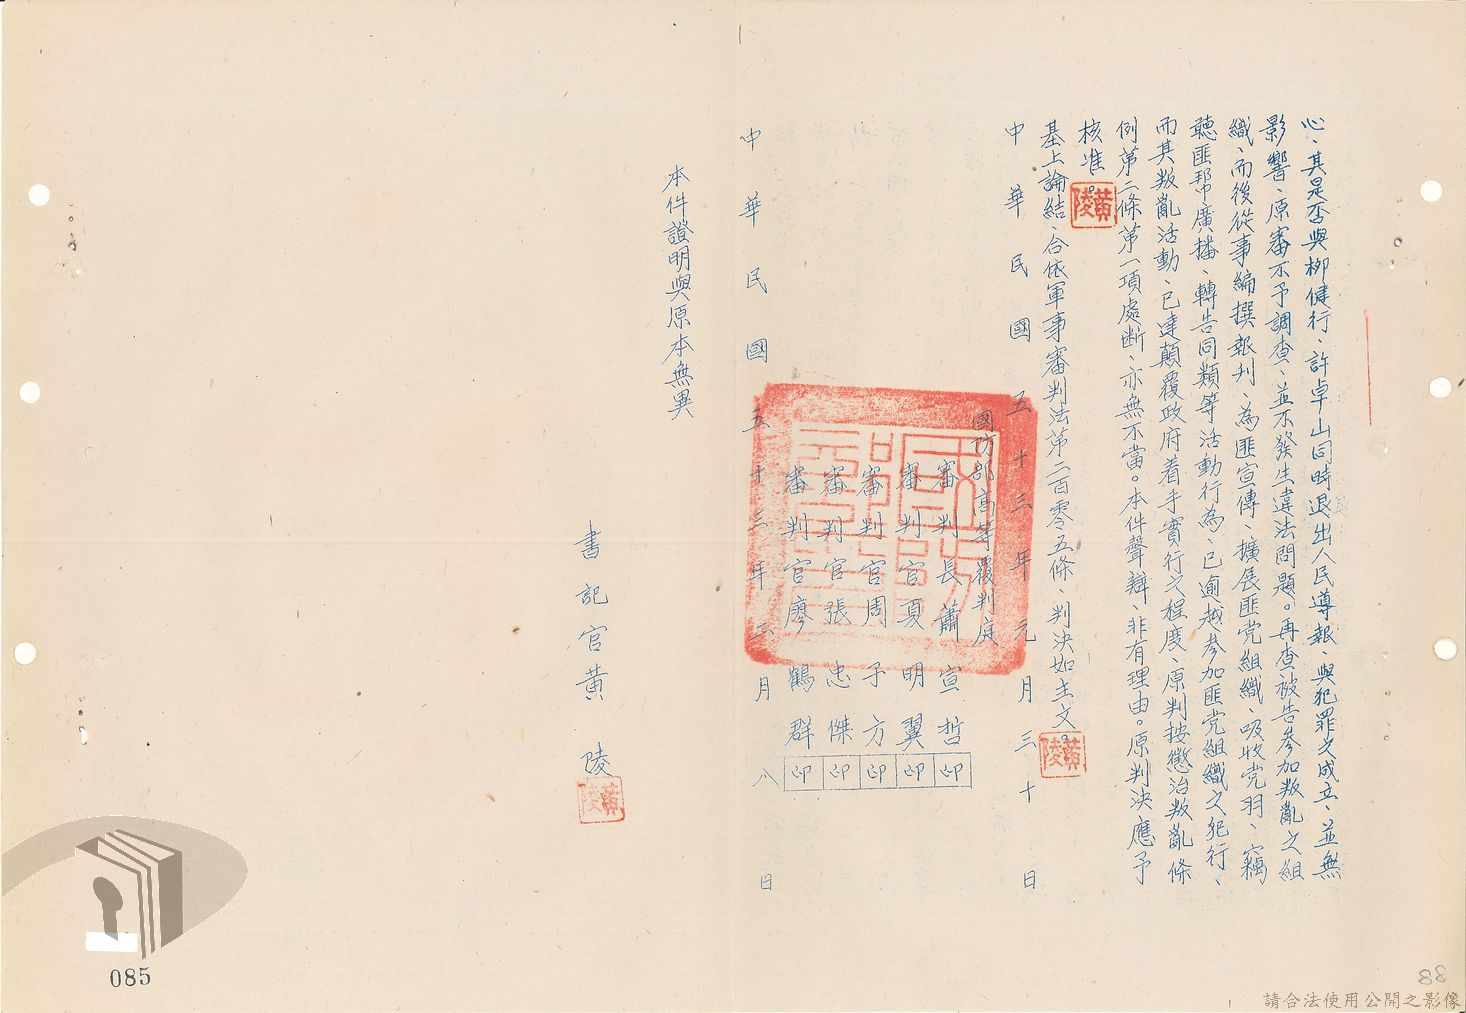 心、其是否與柳健行、許卓山同時退出人民導報、與犯罪之成立、並無
影響、原審不予調查、並不發生違法問題。再查被告參加叛亂之組
織、而後從事編撰報刊、為匪宣傳、擴展匪党組織、吸收党羽、竊
聽匪帮廣播、轉告同類等活動行為、已逾越參加匪党組織之犯行、
而其叛亂活動、已達顛覆政府着手實行之程度、原判按懲治叛亂條
例第二條第一項處断、亦無不當。本件聲辯、非有理由。原判決應予
核准。
黃陵
基上論結、合依軍事審判法第二百零五條、判決如主文。
黃陵
中華民國五十三年元月三十日
國防部高等覆判庭
審判長蕭宣哲印
審判官夏明翼印
審判官周子方印
審判官張忠傑印
審判官廖鶴群印
中華民國五十三年二月八日
本件證明與原本無異
書記官黃陵
黃陵
085
88
請合法使用公開之影像